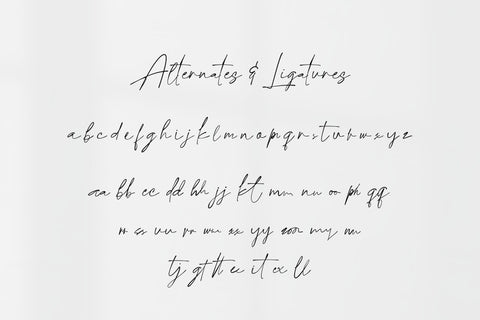 Alternates & Ligatures
a b c d e f g h i j k l m n o p q r s t u v w x y z
aa bb cc dd hh jj kt mm nn oo ph qq
rr ss uu vv ww xx yy zoo my nn
tj gt tt ec it ex ll